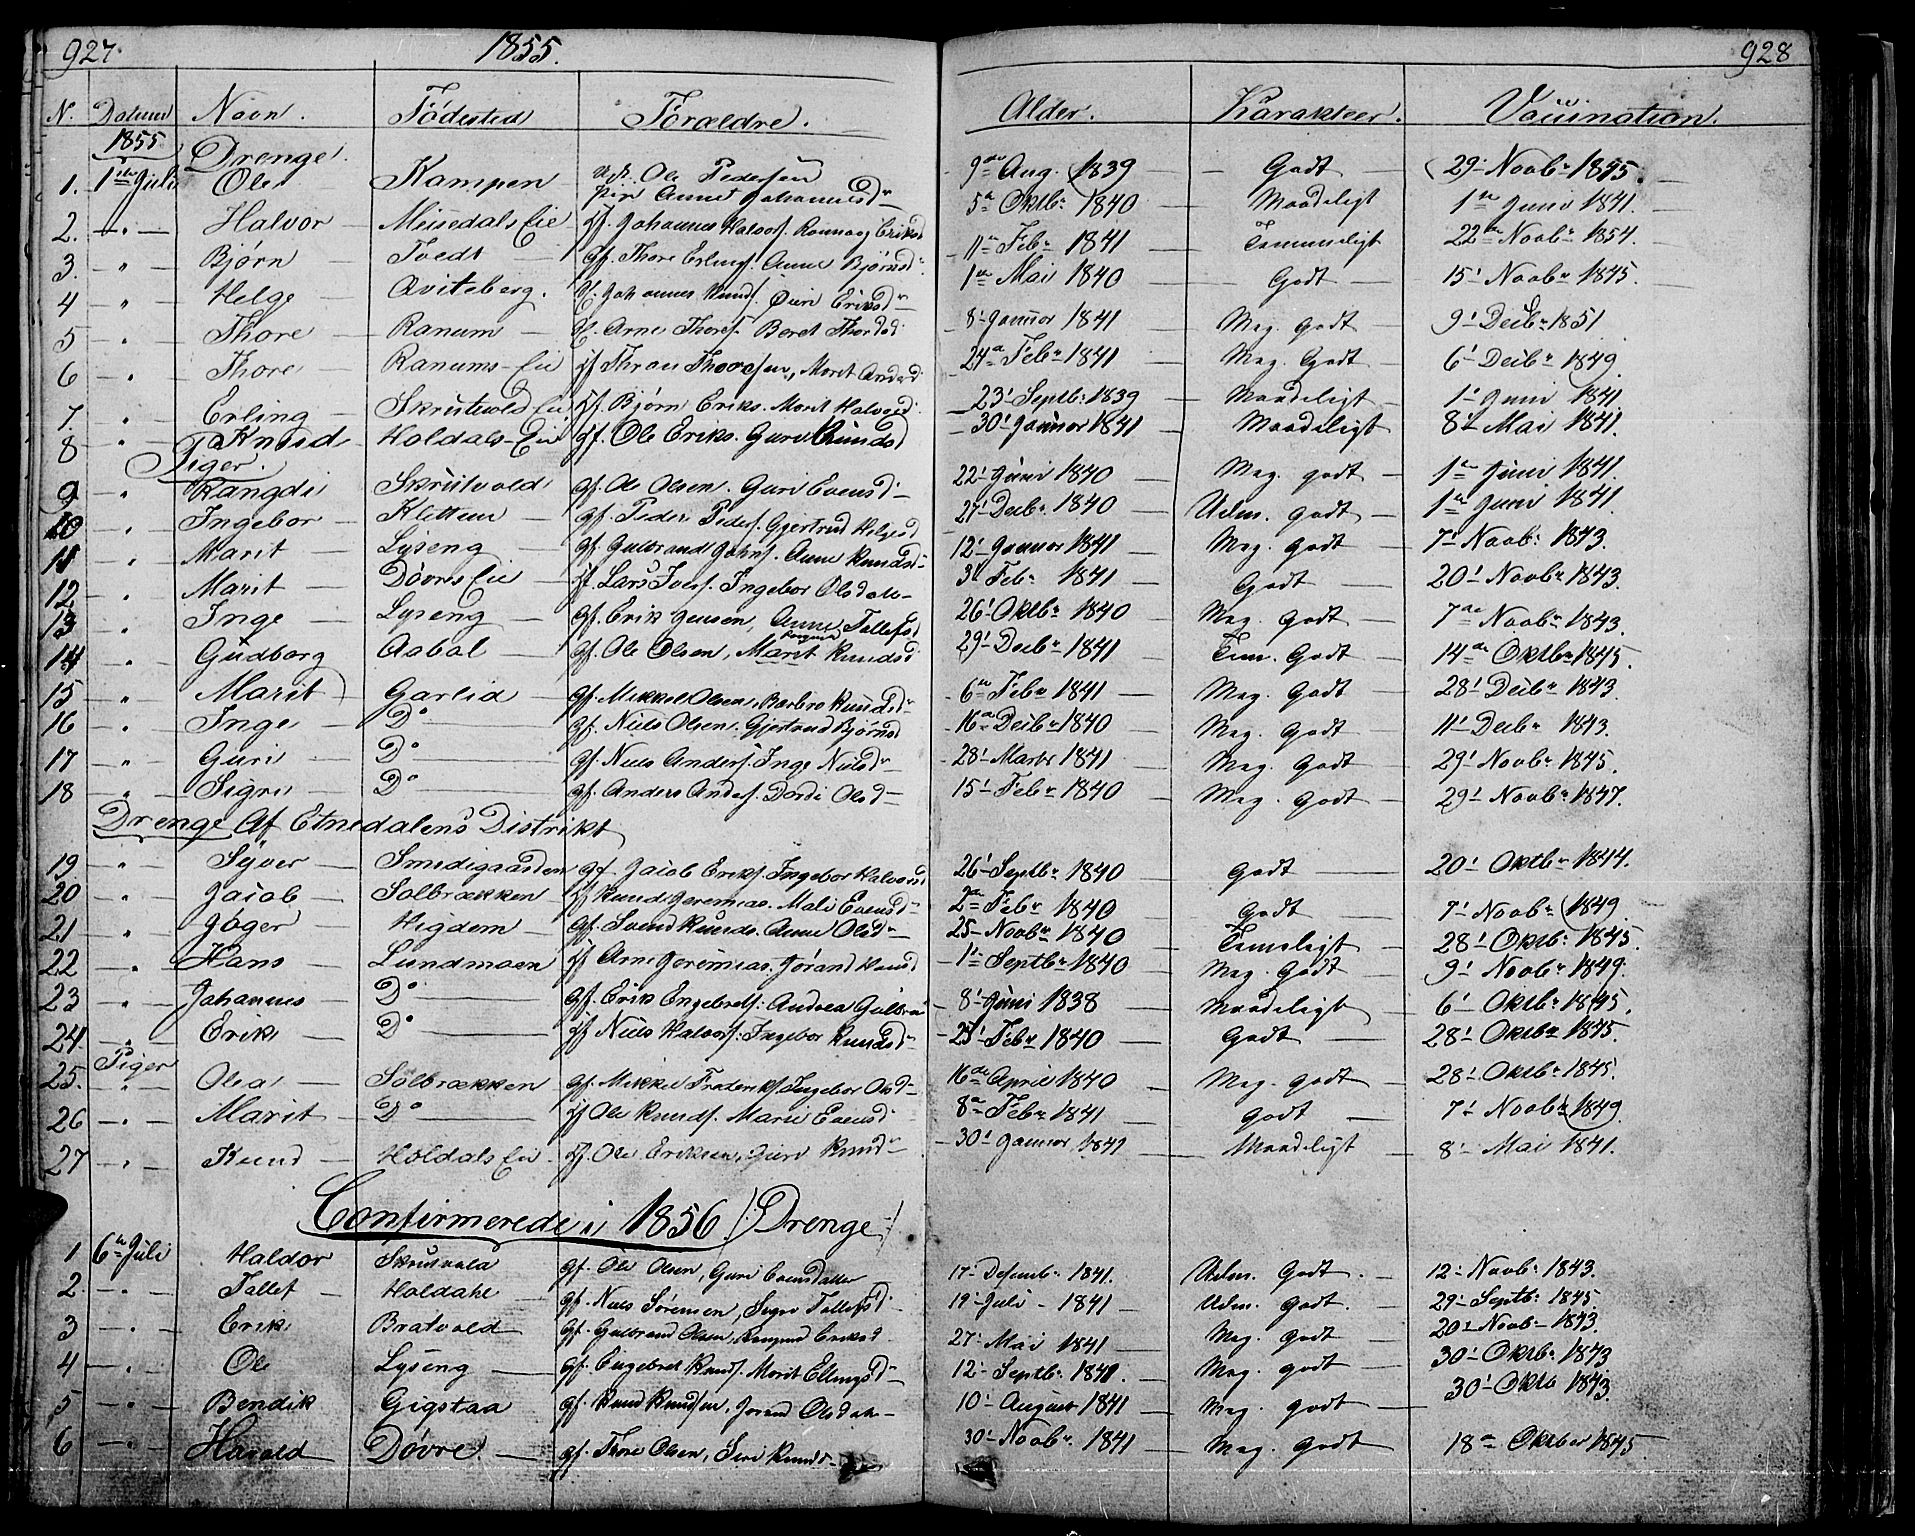 927. 1855. 928
N. Datum Navn. Fødested Forældre. Alder. Karakteer. Vaccination.
1855 Drenge.
1. 1ste Juli Ole Kampen Ole Pedersen Anne Johannesd 9de Aug. 1839 Godt 29' Novbr 1845.
2. " Halvor Meisedals Eie Gf. Johannes Halvors. Rannoug Eriksd 5te Oktbr 1840 Maadeligt 1ste Juni 1841.
3. " Bjørn Tvedt Gf. Thore Erlings. Anne Bjørnsd 11te Febr 1841 Temmeligt 22de Novbr 1854.
4 " Helge Qviteberg. Gf. Johannes Knuds. Guri Eriksdr 1ste Mai 1840 Godt 15' Novbr 1845.
5 " Thore Ranum Gf. Arne Thores. Beret Thordsd 8' Januar 1841 Meg. Godt 9' Decbr 1851
6 " Thore Ranums-Eie Gf Thron Thoresen, Marit Andsd 24de Febr 1841 Meg. Godt 6' Decbr 1849.
7. " Erling Skrutvold Eie Gf. Bjørn Eriks. Marit Halvorsd 23' Septbr 1839 Maadeligt 1' Juni 1841
8 " Knud Holdals-Eie Gf. Ole Eriks. Guri Knudsd 30' Januar 1841 Maadeligt 8' Mai 1841.
Piger.
9 " Rangdi Skrutvold Gf. Ole Olsen. Guri Evensd 22' Juni 1840 Meg. godt 1ste Juni 1841.
10 " Ingebor Klettum Gf. Peder Peders. Gjertrud Helgesd 27' Decbr 1840 Udm. godt 1ste Juni 1841.
11 " Marit Lyseng Gf. Gulbrand Johns. Anne Knudsd 12' Januar 1841 Meg. Godt 7' Novbr 1843.
12 " Marit Døvres Eie Gf. Lars Ivers. Ingebor Olsdatr 3' Febr 1841 Godt 20' Novbr 1843.
13 " Inge Lyseng Gf. Erik Jensen, Anne Tollefsd 26' Oktbr 1840 Meg. Godt 7de Novbr 1843.
14 " Gudborg Aabol Gf. Ole Olsen, Marit Knudsd 29' Decbr 1841 Tem. Godt 14de Oktbr 1845.
15 " Marit Garlid Gf. Mikkel Olsen, Barbro Knudsdr 6te Febr 1841 Meg. Godt 28' Decbr 1843.
16 " Inge Do Gf. Niels Olsen. Gjertrud Bjørnsd 16de Decbr 1840 Meg. Godt 11' Decbr 1843.
17 " Guri Do Gf. Niels Anders. Inge Nielsdr 28' Marts 1841 Meg. Godt 29' Novbr 1845.
18 " Sigri Do Gf. Anders Anders. Dordi Olsd 15' Febr 1840 Meg. Godt 29' Novbr 1847.
Drenge Af Etnedalens Distrikt
19 " Syver Smedigaarden Gf. Jacob Eriks. Ingebor Halvorsd 26' Septbr 1840 Godt 20' Oktbr 1844.
20 " Jacob Solbrækken Gf Knud Jeremias. Mali Evensdr 2den Febr 1840 Godt 7' Novbr 1849
21 " Jøger Høgdem Gf. Svend Knuds. Anne Olsdr 25 Novbr 1840 Temeligt 28' Oktbr 1845.
22 " Hans Lundmoen Gf Arne Jeremias. Jørand Knudsd 1' Septbr 1840 Meg. Godt 9' Novbr 1849.
23 " Johannes Do Gf. Erik Engebrets: Andrea Gulbran 8' Juni 1838 Maadeligt 6' Oktbr 1845.
24 " Erik Do Gf Niels Halvors: Ingebor Knudsdr 25' Febr 1840 Godt 28' Oktbr 1845.
Piger
25. " Olea Solbrækken Gf. Mikkel Frederiks. Ingebor Olsd 16de April 1840 Meg. godt 28' Oktbr 1845.
26 " Marit Do Gf Ole Knuds. Marie Evensd 8de Febr 1841 godt 7' Novbr 1849
27 " Knud Holdals Eie Gf. Ole Eriksen, Guri Knudsdr 30' Januar 1841 Maadeligt 8' Mai 1841.
Confirmerede i 1856 /: Drenge :/
1 6te Juli Haldor Skrutvold Gf. Ole Olsen, Guri Evensdatter 17' Desembr 1841. Udm. Godt. 12' Novbr 1843.
2. " Tollef Holdahl Gf. Niels Sørensen, Sigri Tollefsd 19' Juli 1841 Udm. Godt. 29' Septbr 1845.
3 " Erik Bratvold Gf. Gulbrand Olsen, Ragnild Eriksd 27' Mai 1841 Meg. Godt 20' Novbr 1843.
4 " Ole Lyseng Gf. Engebret Knuds. Marit Ellingsdr 12' Septbr 1841. Meg. godt 30' Oktbr 1843
5 " Bendik Gigstaa Gf. Knud Knudsen, Jorand Olsdatr 10' August 1841 Meg. godt 30' Oktb 1843
6 " Harald Døvre Gf. Thore Olsen, Siri Knudsd 30' Novbr 1841 Meg. Godt 18de Oktber 1845